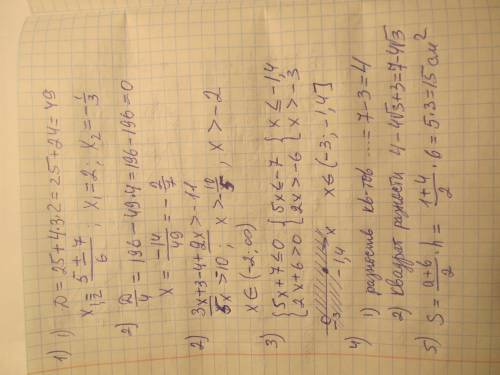 1) 1) D = 25+4·3·2 = 25+24 = 49
x₁,₂ = (5±7)/6 ; x₁ = 2; x₂ = -1/3
2) D/4 = 196 - 49·4 = 196-196 = 0
x = -14/49 = -2/7
2) 3x+3-4+2x > -11
5x > -10 ; x > -10/5 ; x > -2
x ∈ (-2; ∞)
3) { 5x+7 ≤ 0 { 5x ≤ -7 { x ≤ -1,4
{ 2x+6 > 0 { 2x > -6 { x > -3
-3 -1,4 x x ∈ (-3; -1,4]
4) 1) разность кв-тов ... = 7-3 = 4
2) квадрат разности 4-4√3+3 = 7-4√3
5) S = (a+b)/2 · h = (1+4)/2 · 6 = 5·3 = 15 см²